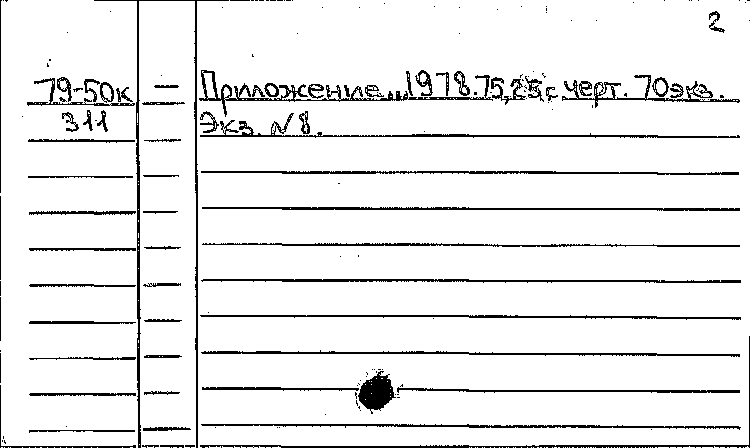 2
79-50к — Приложение... 1978. 75, 25 с. черт. 70экз.
311 Экз. №8.